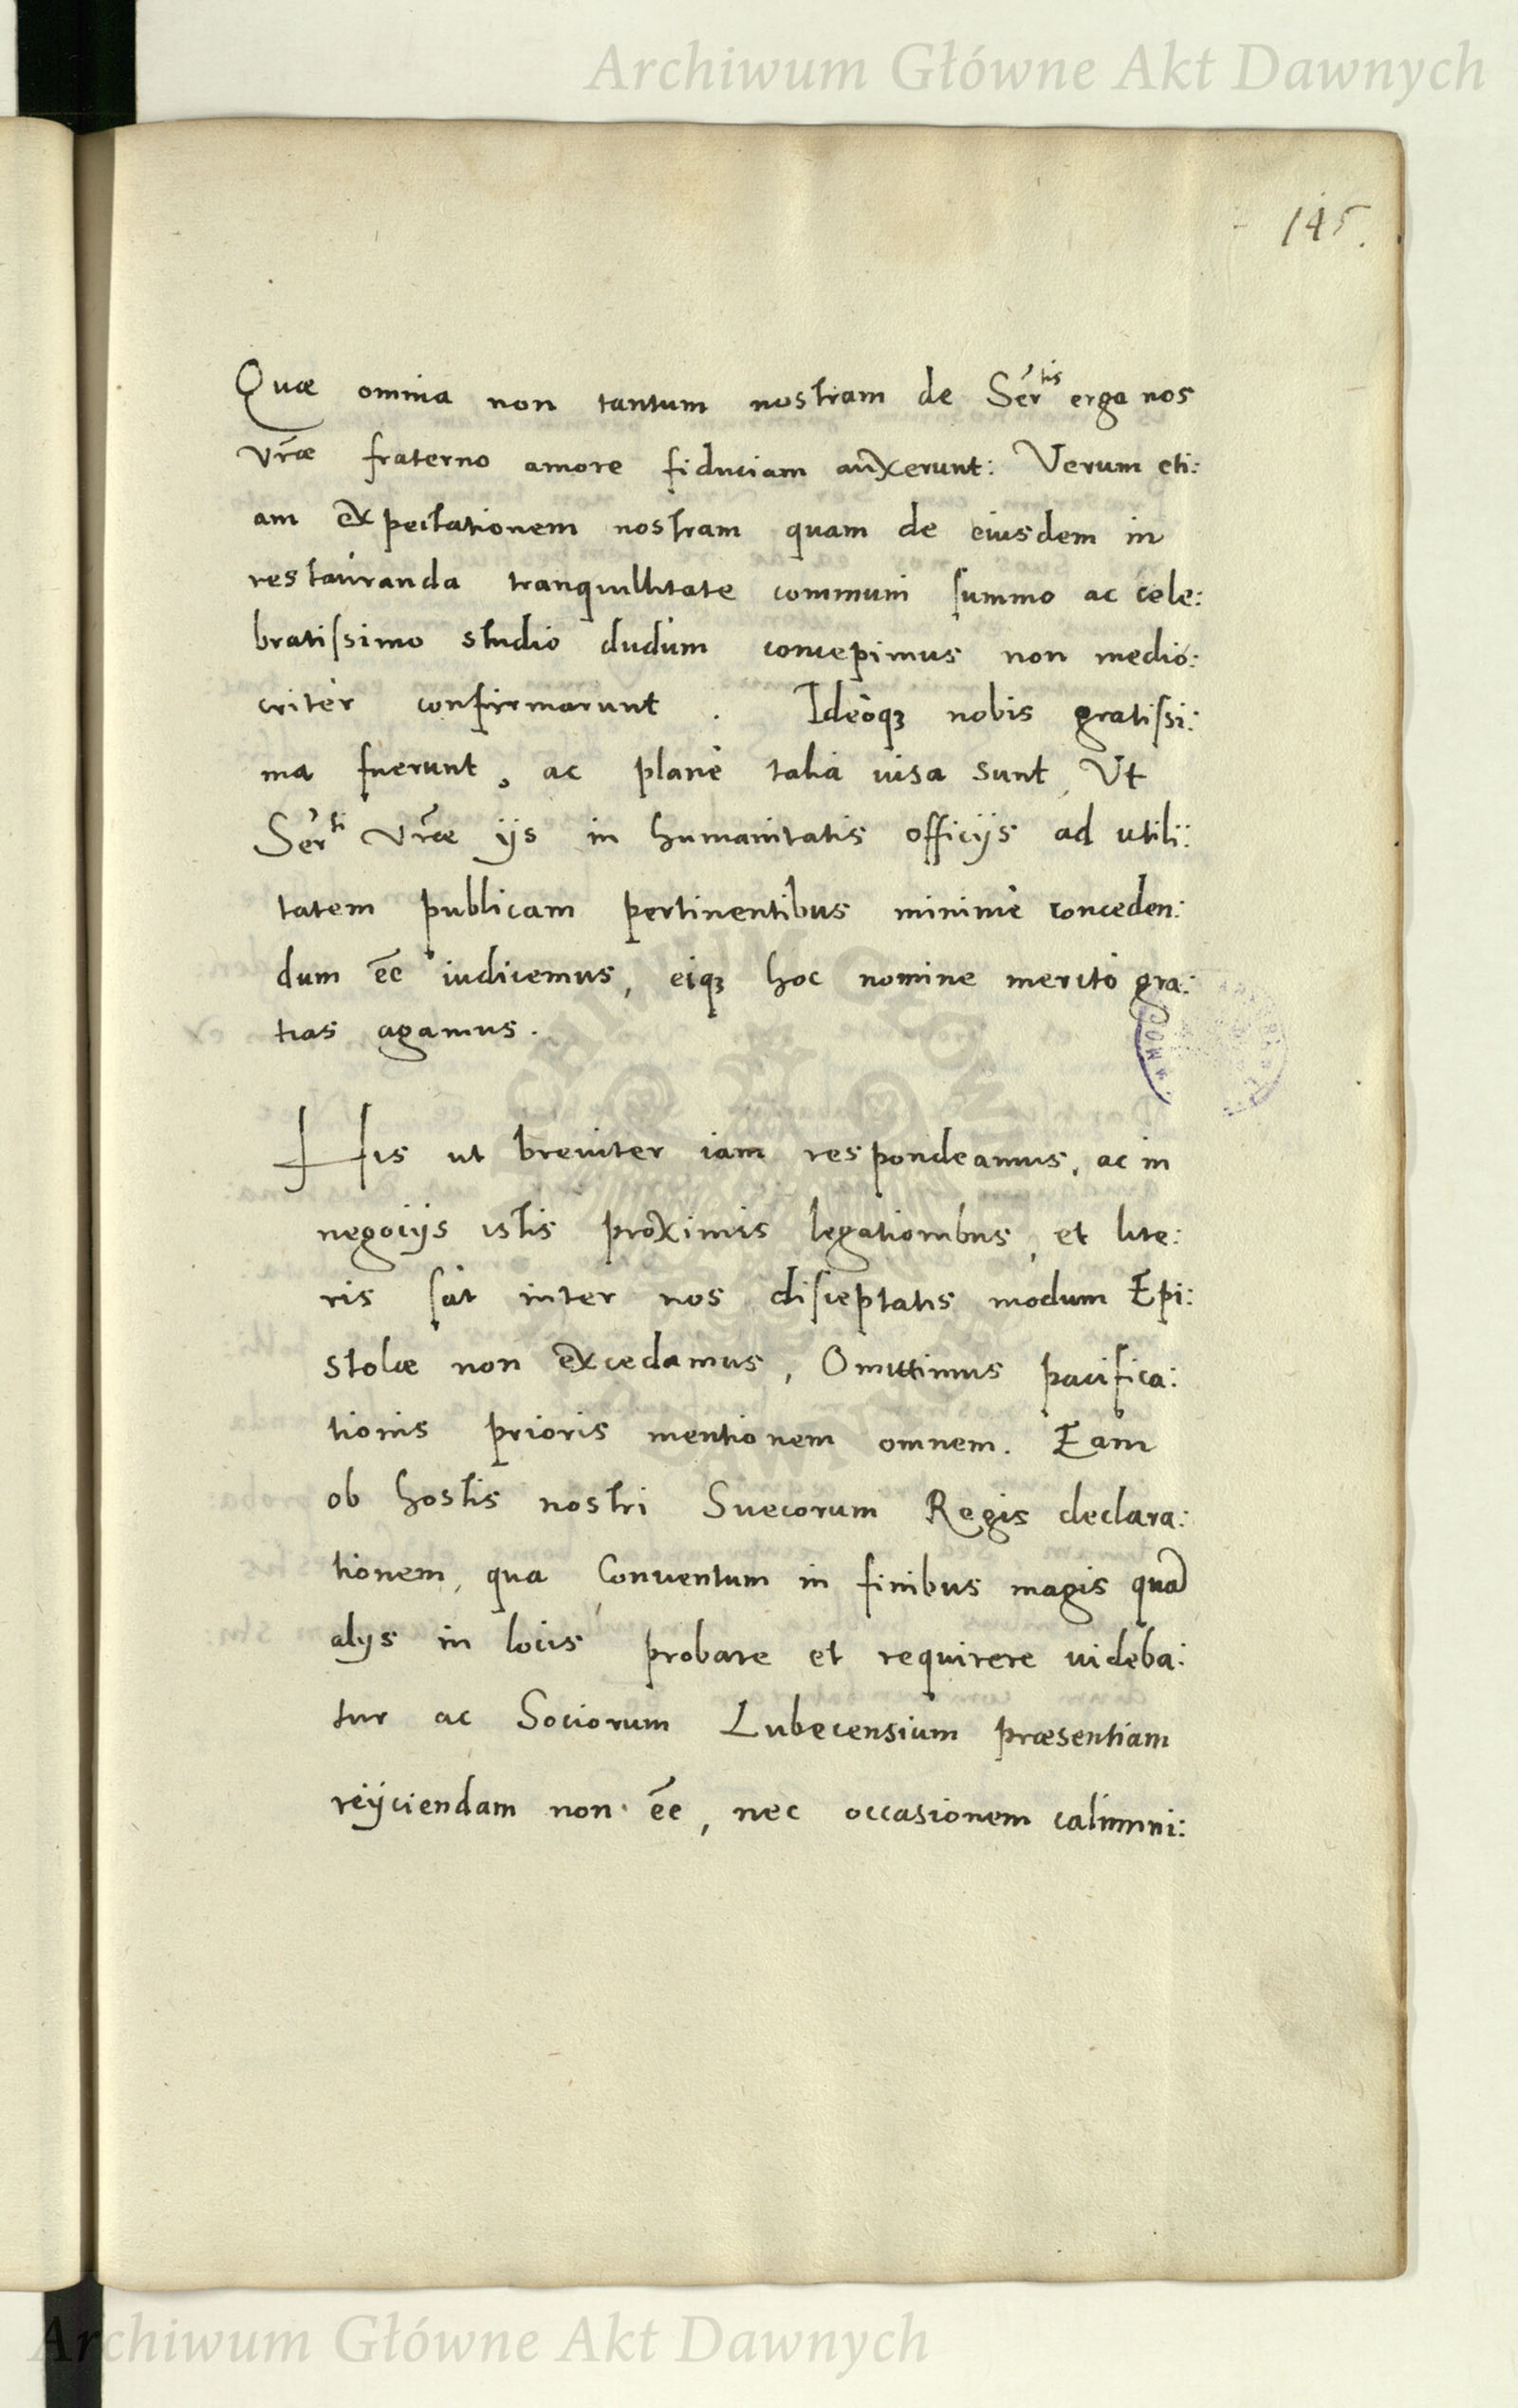 Archiwum Główne Akt Dawnych
145.
Quæ omnia non tantum nostram de Ser^tis erga nos
Vr̃æ fraterno amore fiduciam auxerunt: Verum eti:
am expectationem nostram quam de eiusdem in
restauranda tranquillitate communi summo ac cele:
bratissimo studio dudum concepimus non medio:
criter confirmarunt. Ideoqꝫ nobis gratissi:
ma fuerunt, ac planè talia uisa sunt, Vt
Ser^ti Vr̃æ ijs in humanitatis officijs ad utili:
tatem publicam pertinentibus minimè conceden:
dum ēe iudicemus, eiqꝫ hoc nomine meritò gra:
tias agamus.
His ut breuiter iam respondeamus, ac in
negocijs istis proximis legationibus, et lite:
ris sat inter nos disceptatis modum Epi:
stolæ non excedamus, Omittimus pacifica:
tionis prioris mentionem omnem. Eam
ob hostis nostri Suecorum Regis declara:
tionem, qua Conuentum in finibus magis quā
alijs in locis probare et requirere uideba:
tur ac Sociorum Lubecensium præsentiam
reijciendam non ēe, nec occasionem calumni:
Archiwum Główne Akt Dawnych